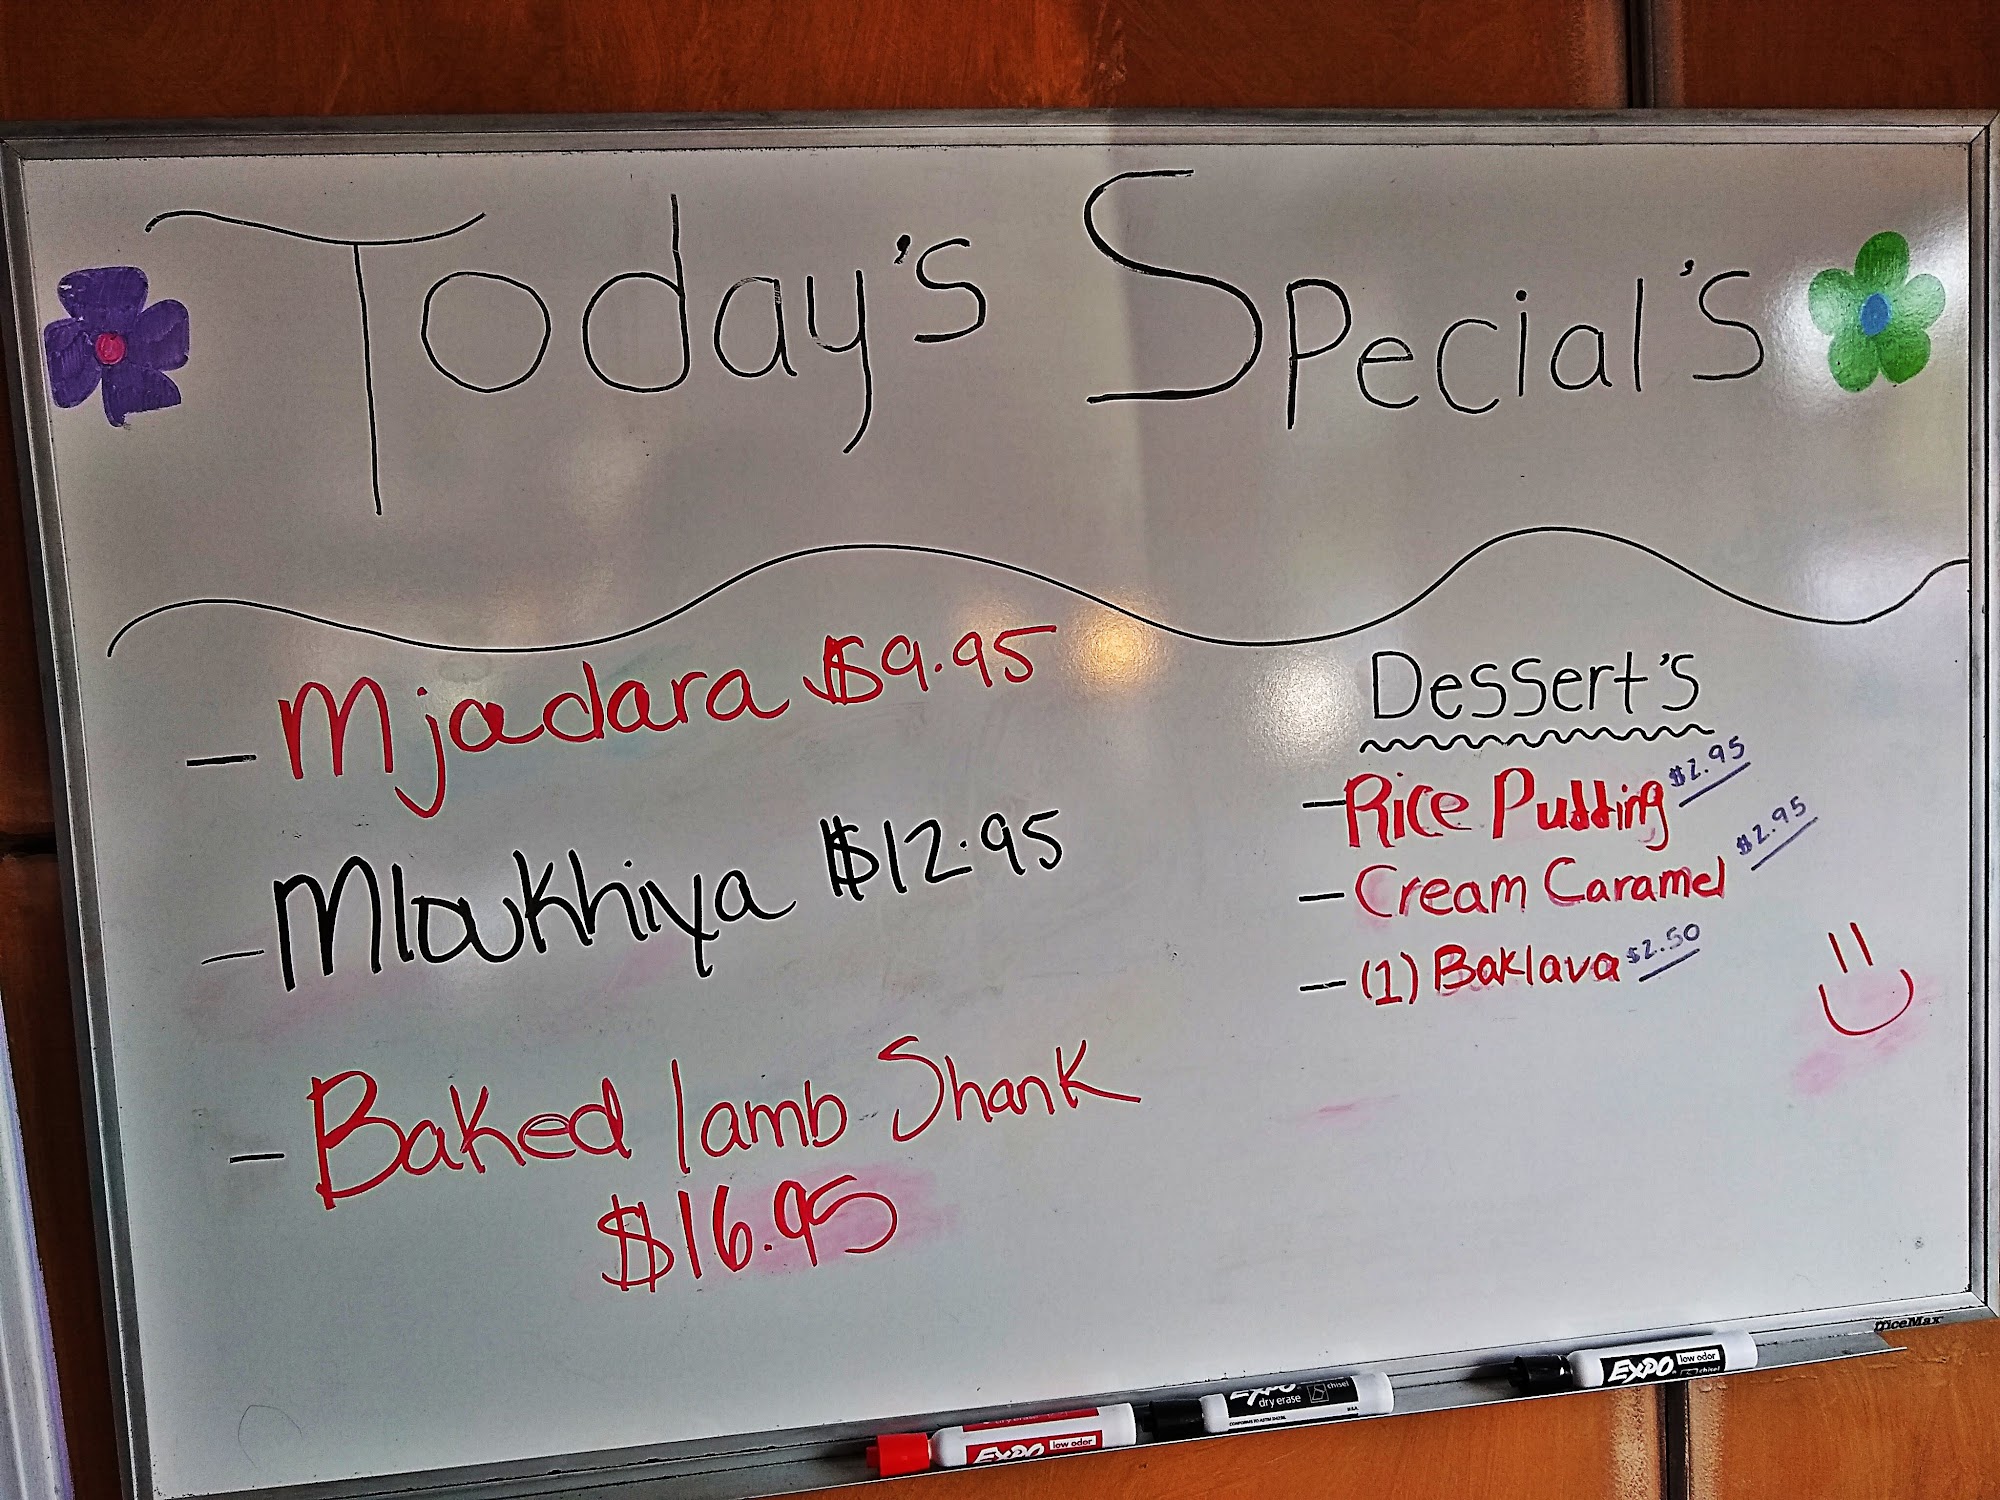 Today's Special's
- Mjadara $9.95
- Mloukhiya $12.95
- Baked lamb Shank
$16.95
Dessert's
- Rice Pudding $2.95
- Cream Caramel $2.95
- (1) Baklava $2.50
OfficeMax
EXPO low odor
EXPO chisel
dry erase
CONFORMS TO ASTM D4236
EXPO low odor
chisel